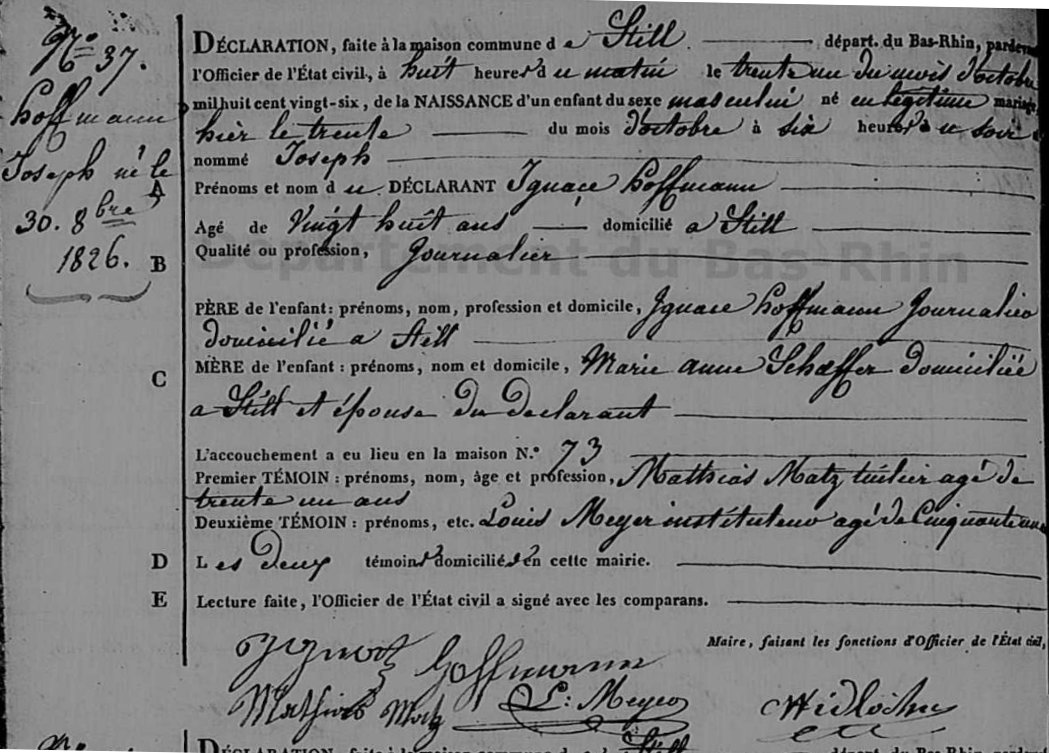 N.° 37.
hoffmann
Joseph né le
30. 8bre
1826.
DÉCLARATION, faite à la maison commune d e Still. départ. du Bas-Rhin, pardevant
l'Officier de l'État civil, à huit heures d u matin le trente un du mois d'octobre
mil huit cent vingt-six, de la NAISSANCE d'un enfant du sexe masculin né en légitime mariage,
hier le trente du mois d'octobre à six heures d u soir
nommé Joseph
A Prénoms et nom d u DÉCLARANT Ignace hoffmann
Agé de Vingt huit ans domicilié a Still
B Qualité ou profession, Journalier
Département du Bas-Rhin
PÈRE de l'enfant: prénoms, nom, profession et domicile, Ignace hoffmann Journalier
domicilié a Still
C MÈRE de l'enfant : prénoms, nom et domicile, Marie anne Schaffer domiciliée
a Still et épouse du declarant
L'accouchement a eu lieu en la maison N.° 73
Premier TÉMOIN : prénoms, nom, âge et profession, Mathias Matz tuilier agé de
trente un ans
Deuxième TÉMOIN : prénoms, etc. Louis Meyer instituteur agé de Cinquante
D L es deux témoins domiciliés en cette mairie.
E Lecture faite, l'Officier de l'État civil a signé avec les comparans.
Maire, faisant les fonctions d'Officier de l'État civil,
Hoffmann
Mathias Matz L: Meyer
DÉCLARATION, faite à la maison commune d e Still départ. du Bas-Rhin